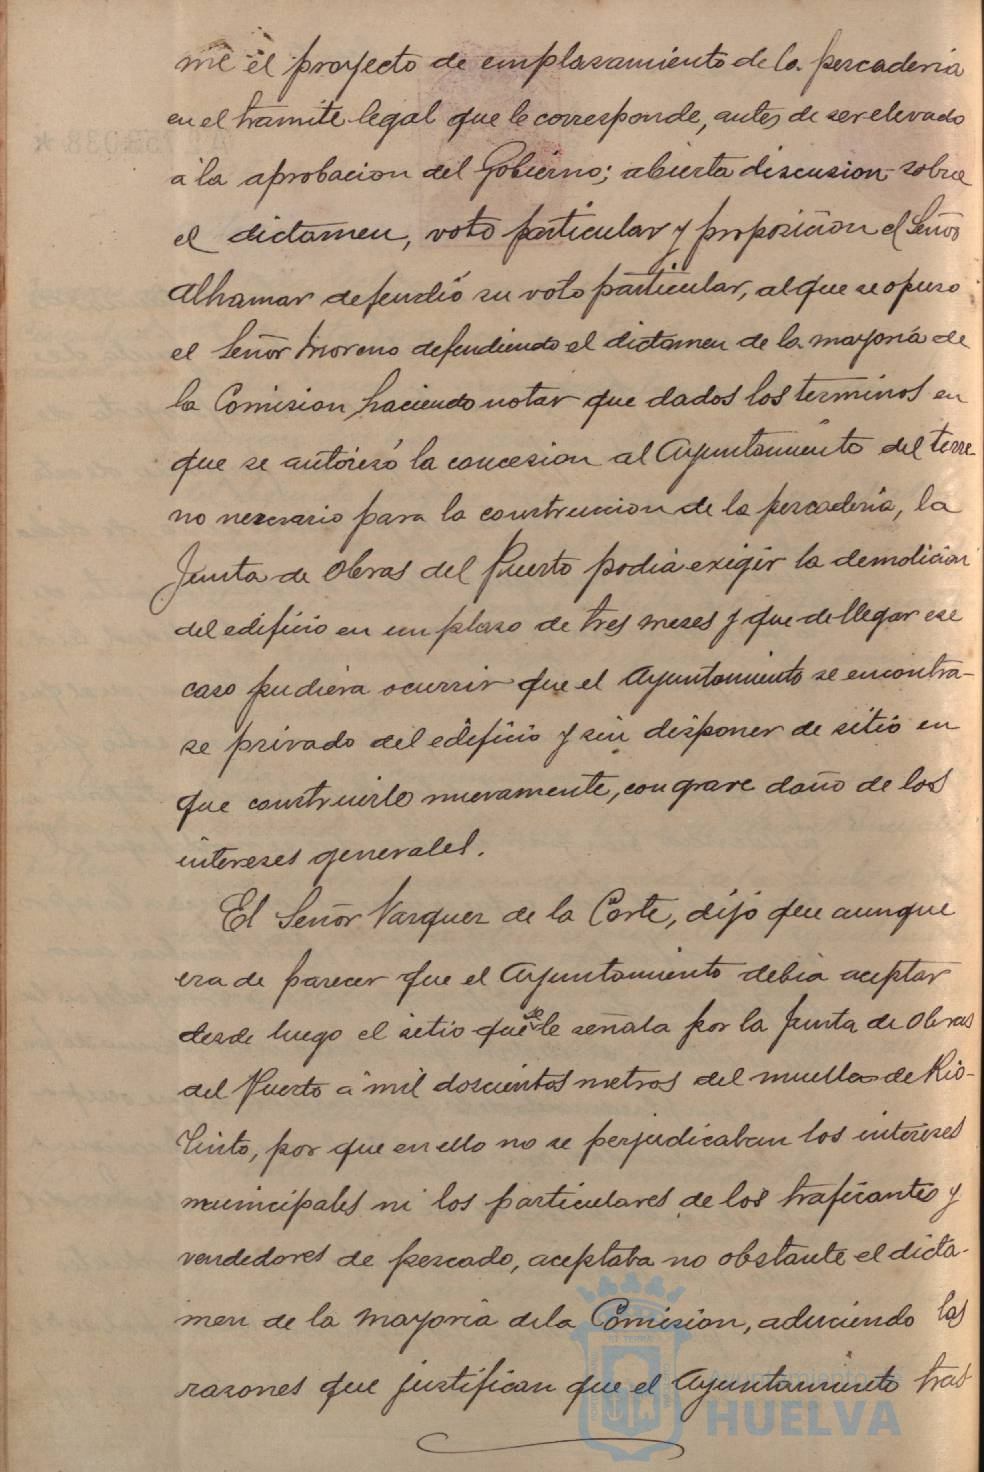 me el proyecto de emplazamiento de la pescaderia
en el tramite legal que le corresponde, antes de ser elevado
á la aprobacion del Gobierno; abierta discusion sobre
el dictamen, voto particular y proposicion el Señor
Alhamar defendió su voto particular, al que se opuso
el Señor Moreno defendiendo el dictamen de la mayoria de
la Comision haciendo notar que dados los terminos en
que se autorizó la concesion al Ayuntamiento del terre-
no necesario para la construccion de la pescaderia, la
Junta de Obras del Puerto podia exigir la demolicion
del edificio en un plazo de tres meses y que de llegar ese
caso pudiera ocurrir que el Ayuntamiento se encontra-
se privado del edificio y sin disponer de sitio en
que construirlo nuevamente, con grave daño de los
intereses generales.
El Señor Vazquez de la Corte, dijo que aunque
era de parecer que el Ayuntamiento debia aceptar
desde luego el sitio que se le señala por la Junta de Obras
del Puerto á mil doscientos metros del muelle de Rio-
Tinto, por que en ello no se perjudicaban los intereses
municipales ni los particulares de los traficantes y
vendedores de pescado, aceptaba no obstante el dicta-
men de la mayoria dela Comision, aduciendo las
razones que justifican que el Ayuntamiento tras
Ayuntamiento de
HUELVA